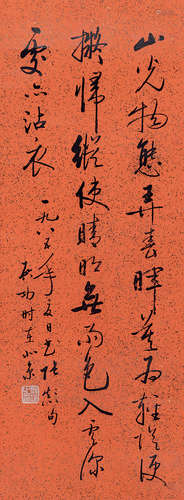 山光物態弄春暉莫為輕陰便
擬歸縱使晴明無雨色入雲深
處亦沾衣
一九八五年夏日書張顛句
启功時在北京